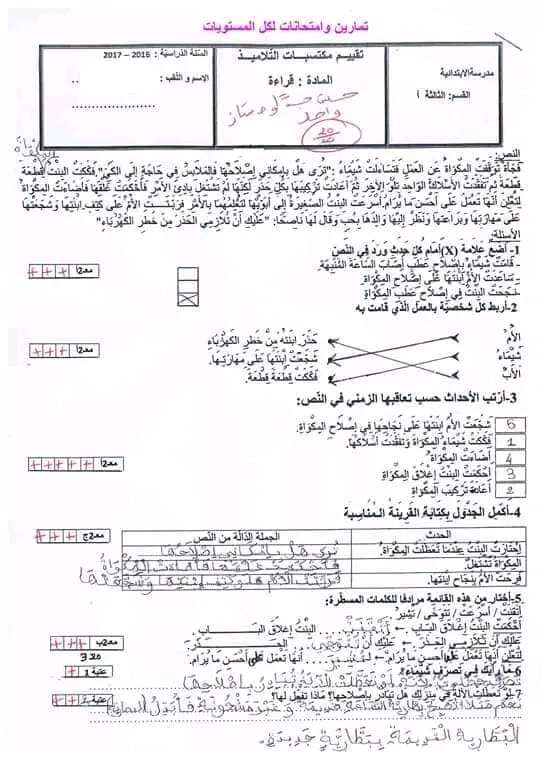 تمارين وامتحانات لكل المستويات
مدرسة الابتدائية
القسم: الثالثة أ
تقييم مكتسبات التلاميذ
المادة : قراءة
السنة الدراسية : 2016 – 2017
الاسم و اللقب :
20
20
النص:
فجأة توقفت المكواة عن العمل فتساءلت شيماء: "ترى هل بإمكاني إصلاحها فالملابس في حاجة إلى الكي". فككت البنت قطعة
قطعة ثم تفقدت الأسلاك الواحد تلو الآخر ثم أعادت تركيبها بكل حذر لكنها لم تشتغل بادئ الأمر فأحكمت غلقها فأضاءت المكواة
لتعلن أنها تعمل على أحسن ما يرام. أسرعت البنت الصغيرة إلى أبويها لتعلمهما بالأمر فربتت الأم على كتف ابنتها وشجعتها
على مهارتها وبراعتها ونظر إليها والدها بحب وقال لها ناصحا: "عليك أن تلازمي الحذر من خطر الكهرباء"
الأسئلة:
1- أضع علامة (X) أمام كل حدث ورد في النص
- قامت شيماء بإصلاح عطب أصاب الساعة المنبهة.
- ساعدت الأم ابنتها على إصلاح المكواة.
- نجحت البنت في إصلاح عطب المكواة
X
مع2أ + + +
2-أربط كل شخصية بالعمل الذي قامت به
الأم
شيماء
الأب
حذر ابنته من خطر الكهرباء
شجعت ابنتها على مهارتها.
فككت قطعة قطعة.
مع2أ + + +
3-أرتب الأحداث حسب تعاقبها الزمني في النص:
5 شجعت الأم ابنتها على نجاحها في إصلاح المكواة.
1 فككت شيماء المكواة وتفقدت أسلاكها.
4 أضاءت المكواة.
3 أحكمت البنت إغلاق المكواة
2 إعادة تركيب المكواة
مع2أ + + + + +
4-أكمل الجدول بكتابة القرينة المناسبة
الحدث
الجملة الدالة من النص
احتارت البنت عندما تعطلت المكواة. ترى هل بإمكاني إصلاحها
المكواة تشتغل. فأحكمت غلقها فأضاءت المكواة
فرحت الأم بنجاح ابنتها. فربتت الأم على كتف ابنتها وشجعتها
مع2ج + + +
5-أختار من هذه القائمة مرادفا للكلمات المسطرة:
أتقنت / أسرعت / تتوخى / تشير
أحكمت البنت إغلاق الباب ← أتقنت البنت إغلاق الباب
عليك أن تلازمي الحذر ← عليك أن تتوخي الحذر
لتعلن أنها تعمل على أحسن ما يرام ← لتشير أنها تعمل على أحسن ما يرام.
6-ما رأيك في تصرف شيماء؟
7-لو تعطلت الآلة في منزلك هل تبادر بإصلاحها؟ ماذا تفعل لها؟
البطارية القديمة ببطارية جديدة.